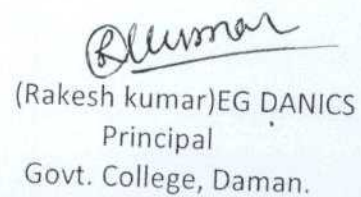 RKumar
(Rakesh kumar)EG DANICS
Principal
Govt. College, Daman.